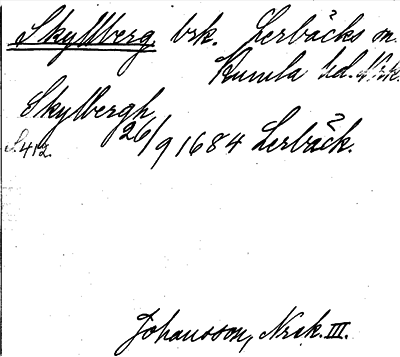 Skyllberg brk. Lerbäcks sn.
Kumla hd. Nrk.
Skylbergh
S. 412. 26/9 1684 Lerbäck.
Johansson, Nrck. III.